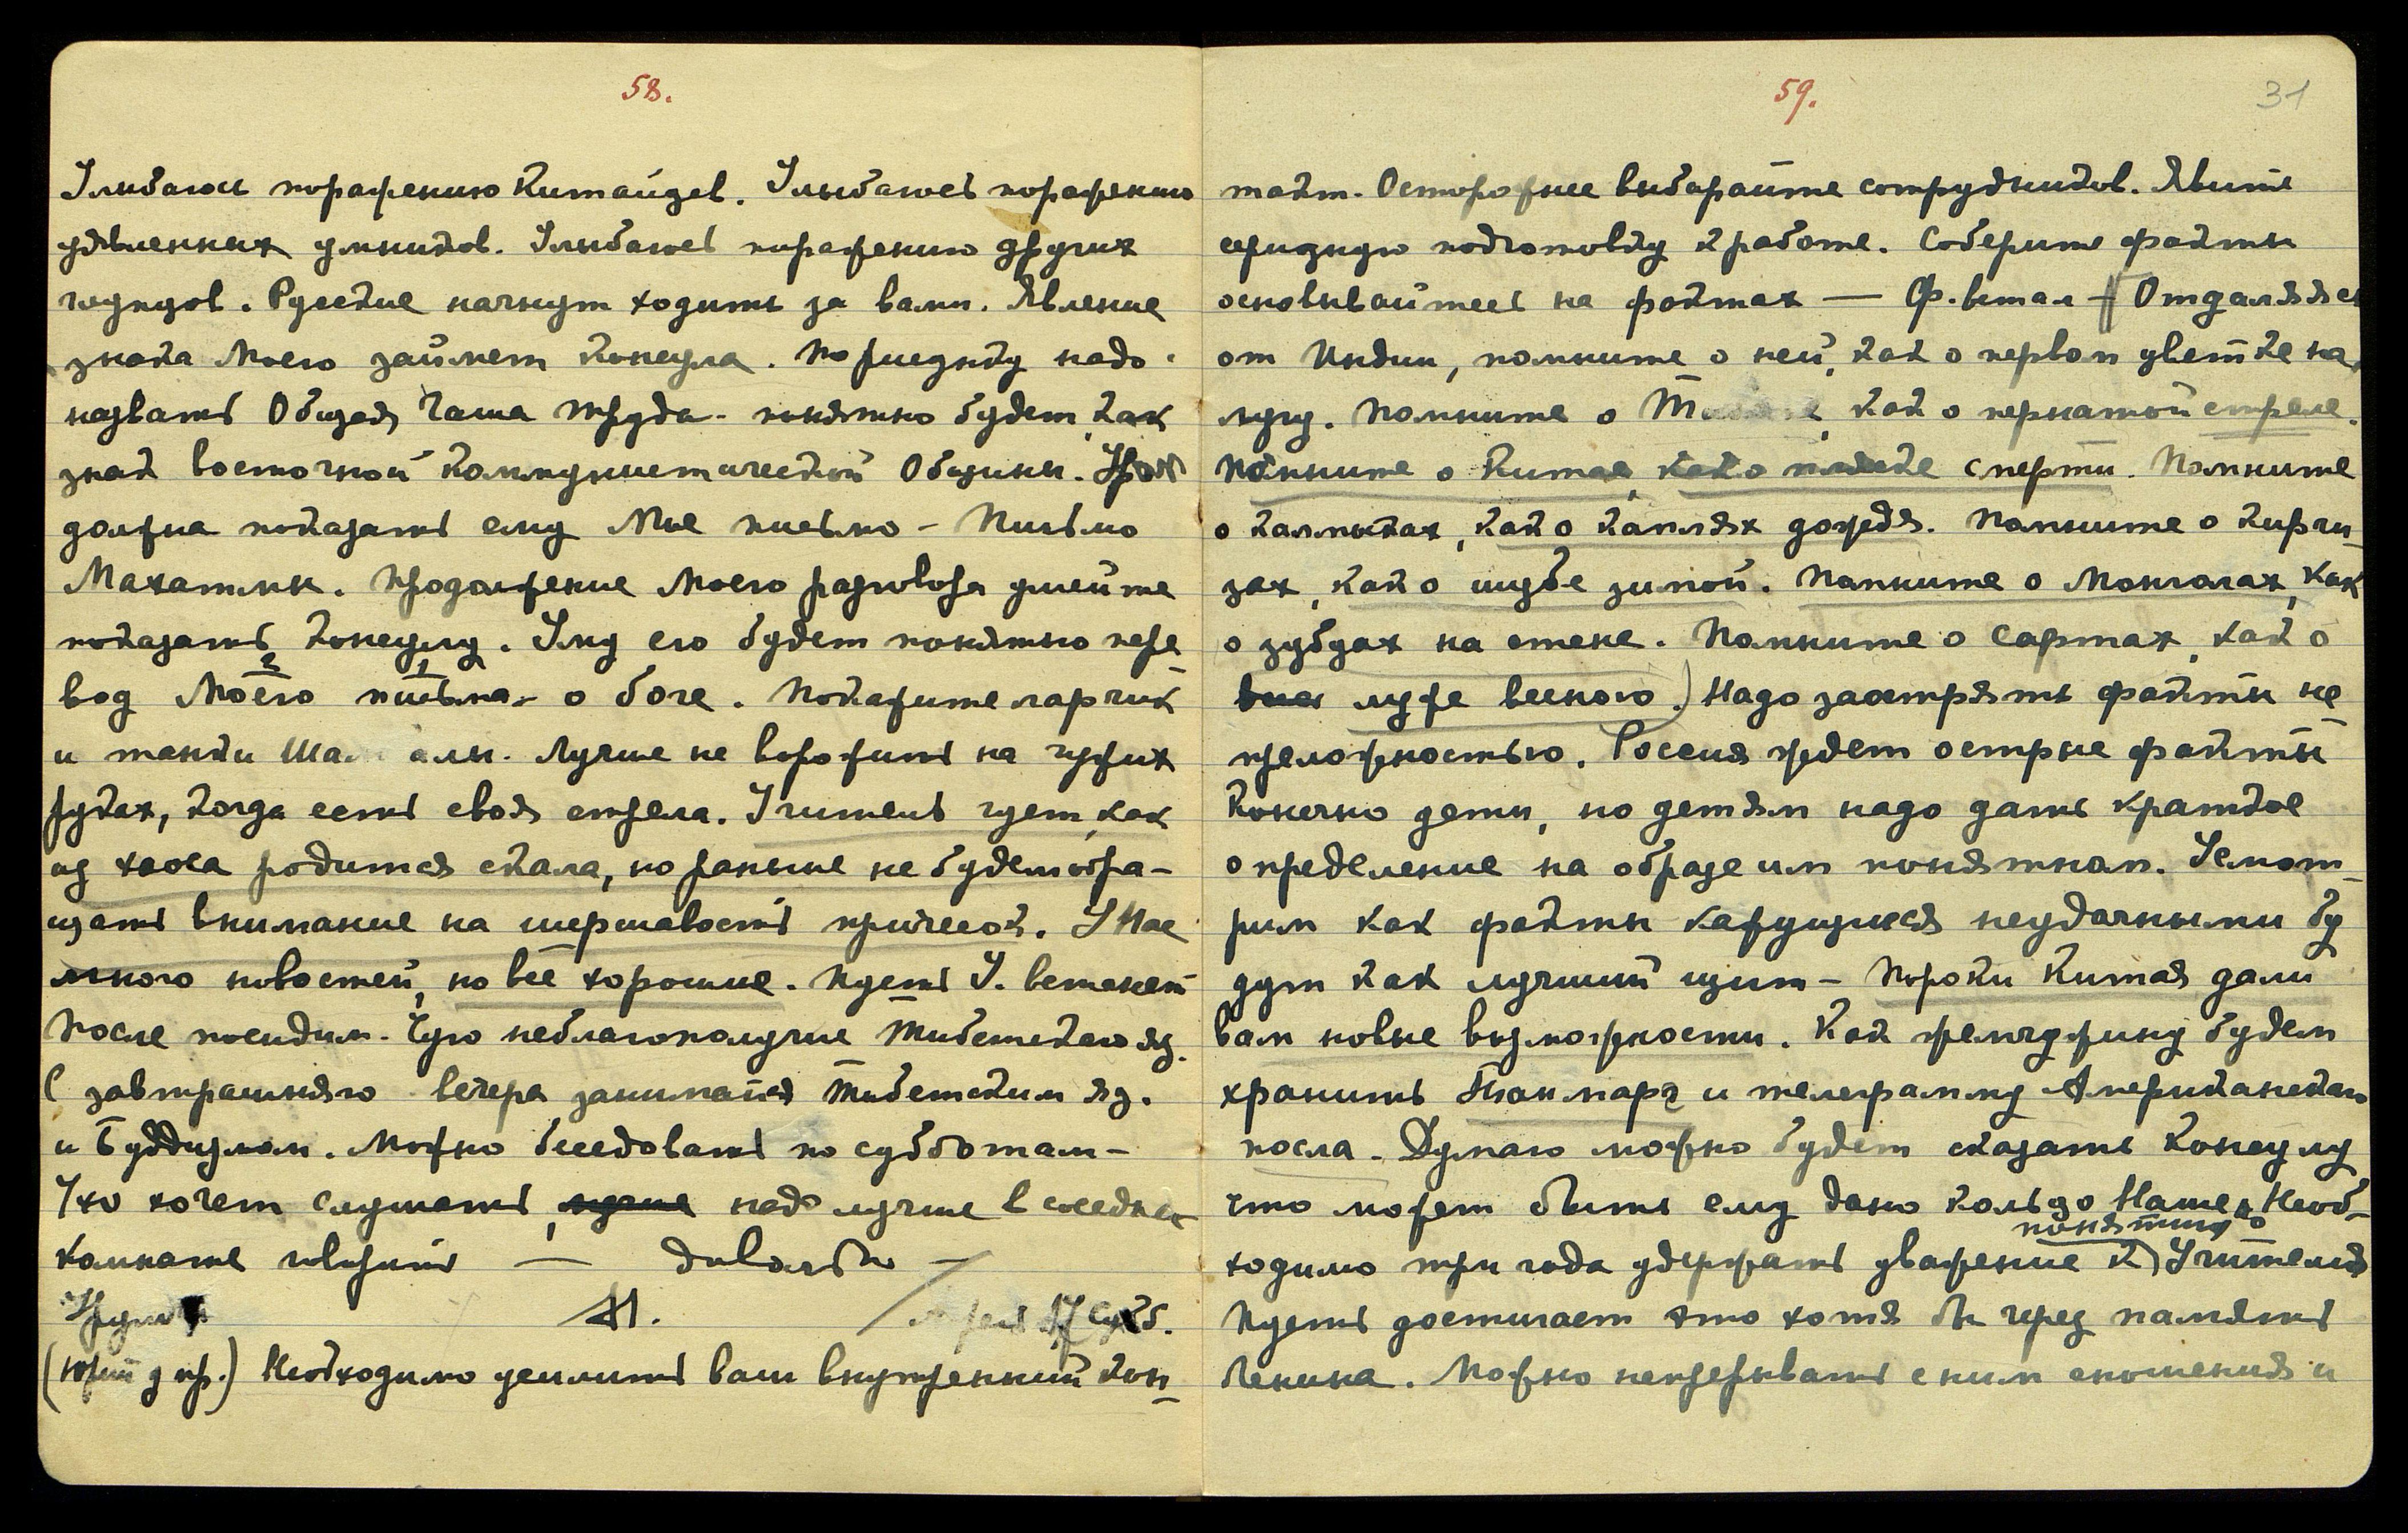 58.
Улыбаюсь поражению Китайцев. Улыбаюсь поражению
удивленных умников. Улыбаюсь поражению других
Русские начнут ходить за вами. Явление
знака Моего займет Консула. По рисунку надо
назвать Общая Чаша труда - понятно будет, как
знак восточной Коммунистической Общины.
должна показать ему Мое письмо - Письмо
Махатмы. Продолжение Моего разговора умейте
показать Консулу. Уму его будет понятно пере
вод Моего письма - о боге. Покажите ларчик
и танки Лучше не ворожить на чужих
руках, когда есть своя стрела. Учитель чует, как
из хаоса родится скала, но раньше не будем обра-
щать внимание на шершавость причесок. У Нас
много новостей, но все хорошие. Пусть У. встанет
После посидим. Чую неблагополучие Тибетского яз.
С завтрашняго вечера занимайся Тибетским яз.
и Буддизмом. Можно беседовать по субботам -
Ухо хочет слушать, надо лучше в соседней
комнате говорить — довольно —
Я.
(Юрий у пр.) Необходимо усилить ваш внутренний кон-
59. 31
такт. Осторожнее выбирайте сотрудников. Явите
серьезную подготовку к работе. Соберите факты
основывайтесь на фактах — Ф. встал - Отдаляясь
от Индии, помните о ней, как о первом цветке на
лугу. Помните о как о пернатой стреле.
Помните о Китае, как о смерти. Помните
о калмыках, как о каплях дождя. Помните о кирги-
зах, как о шубе зимой. Помните о Монголах, как
о зубцах на стене. Помните о Сартах, как о
луже весною.) Надо заострять факты не
преложностью. Россия ждет острые факты
Конечно дети, но детям надо дать краткое
определение на образе им понятном. Усмот-
рим как факты кажущиеся неудачными бу
дут как лучший щит - Пороки Китая дали
вам новые возможности. Как жемчужину будем
хранить и телеграмму Американскаго
посла - Думаю можно будет сказать Консулу
что может быть ему дано кольцо Наше. Необ-
понятию о
ходимо три года удержать уважение к Учителю
Пусть достигает это хотя бы через память
Ленина. Можно с ним сношения и